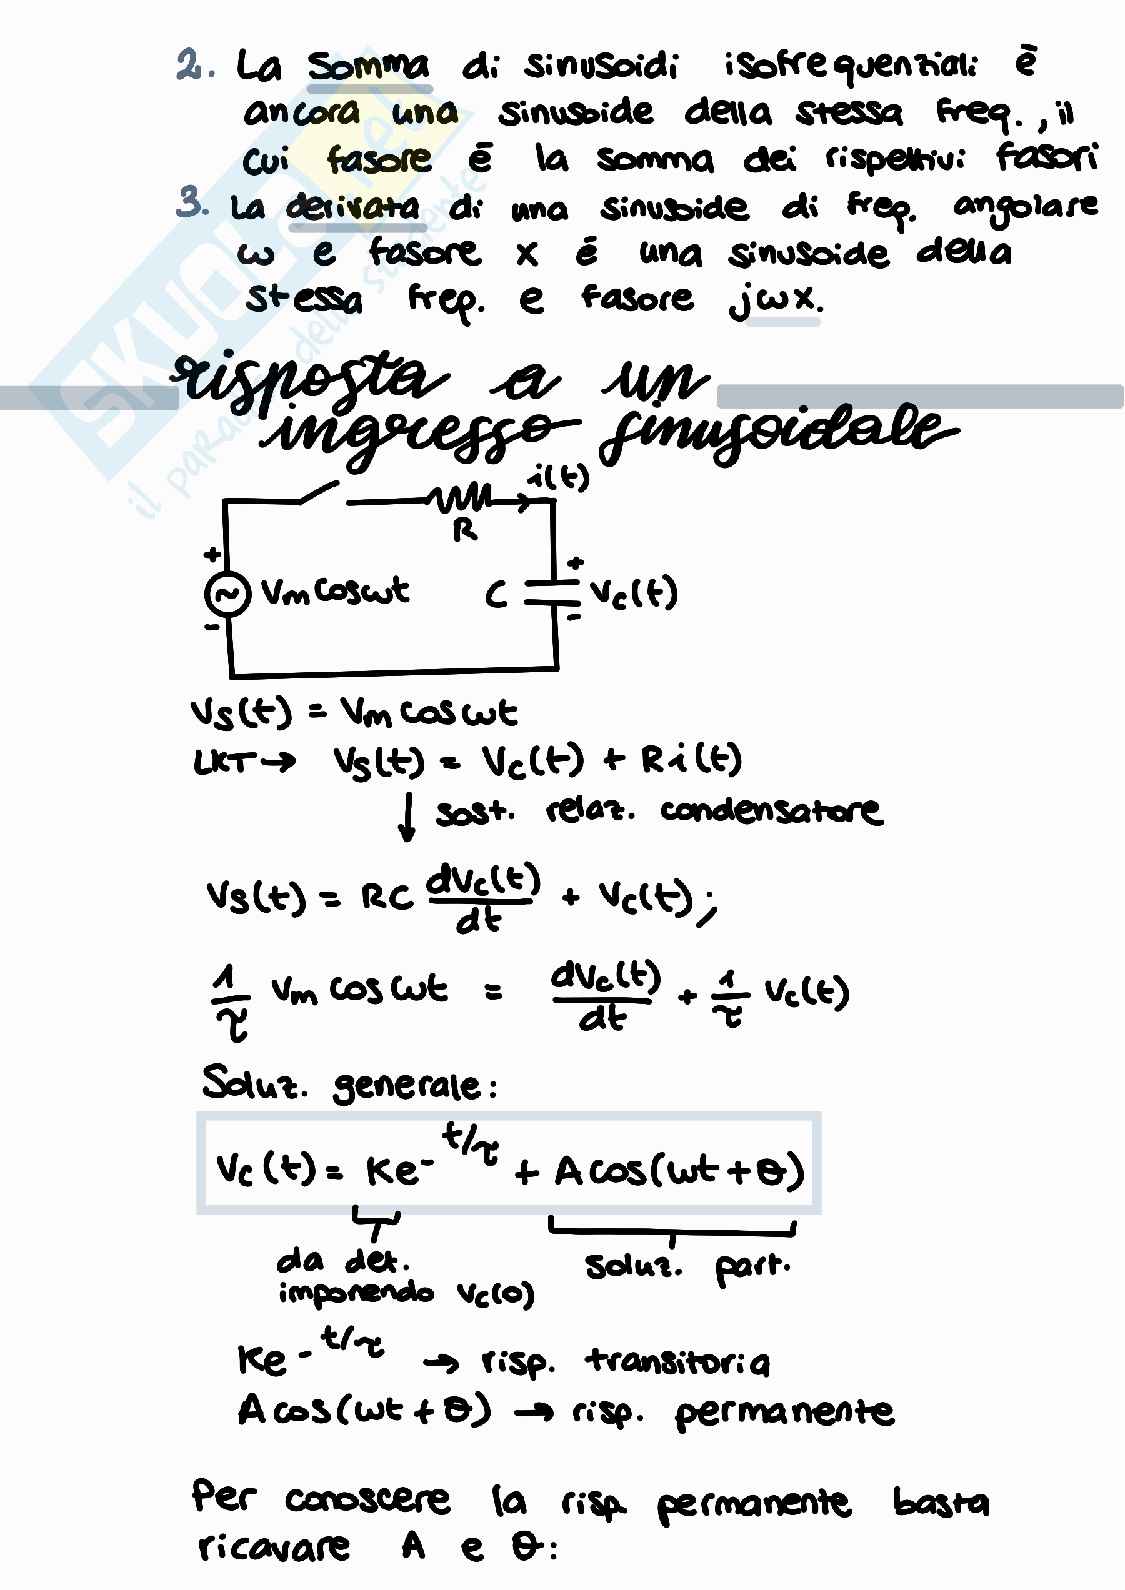 2. La somma di sinusoidi isofrequenziali è
ancora una sinusoide della stessa freq., il
cui fasore è la somma dei rispettivi fasori
3. La derivata di una sinusoide di freq. angolare
ω e fasore x è una sinusoide della
stessa freq. e fasore jωx.
risposta a un
ingresso sinusoidale
i(t)
R
+
Vm cosωt
C
+
Vc(t)
-
-
Vs(t) = Vm cosωt
LKT → Vs(t) = Vc(t) + Ri(t)
↓ sost. relaz. condensatore
Vs(t) = RC dVc(t)/dt + Vc(t);
1/τ Vm cos ωt = dVc(t)/dt + 1/τ Vc(t)
Soluz. generale:
Vc(t) = Ke^-t/τ + A cos(ωt + θ)
da det.
imponendo Vc(0)
soluz. part.
Ke^-t/τ → risp. transitoria
A cos(ωt + θ) → risp. permanente
Per conoscere la risp. permanente basta
ricavare A e θ:
SKUOLA.net
il paradiso dello studente